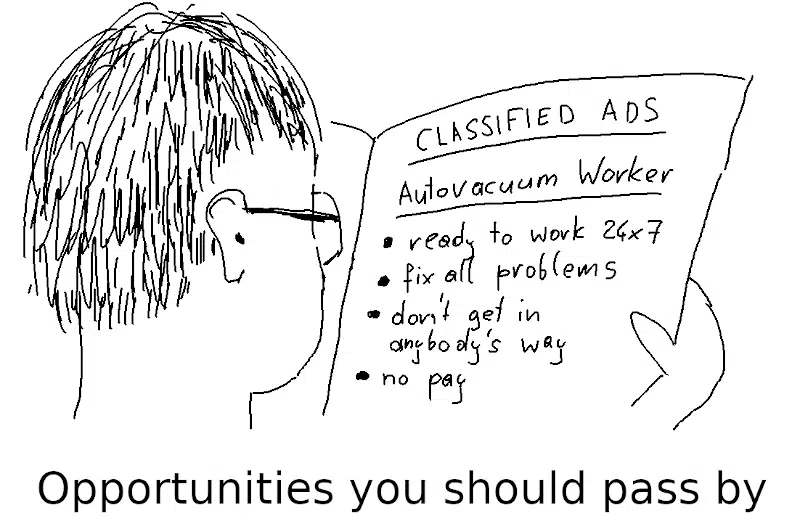 CLASSIFIED ADS
Autovacuum Worker
• ready to work 24x7
• fix all problems
• don't get in
anybody's way
• no pay
Opportunities you should pass by